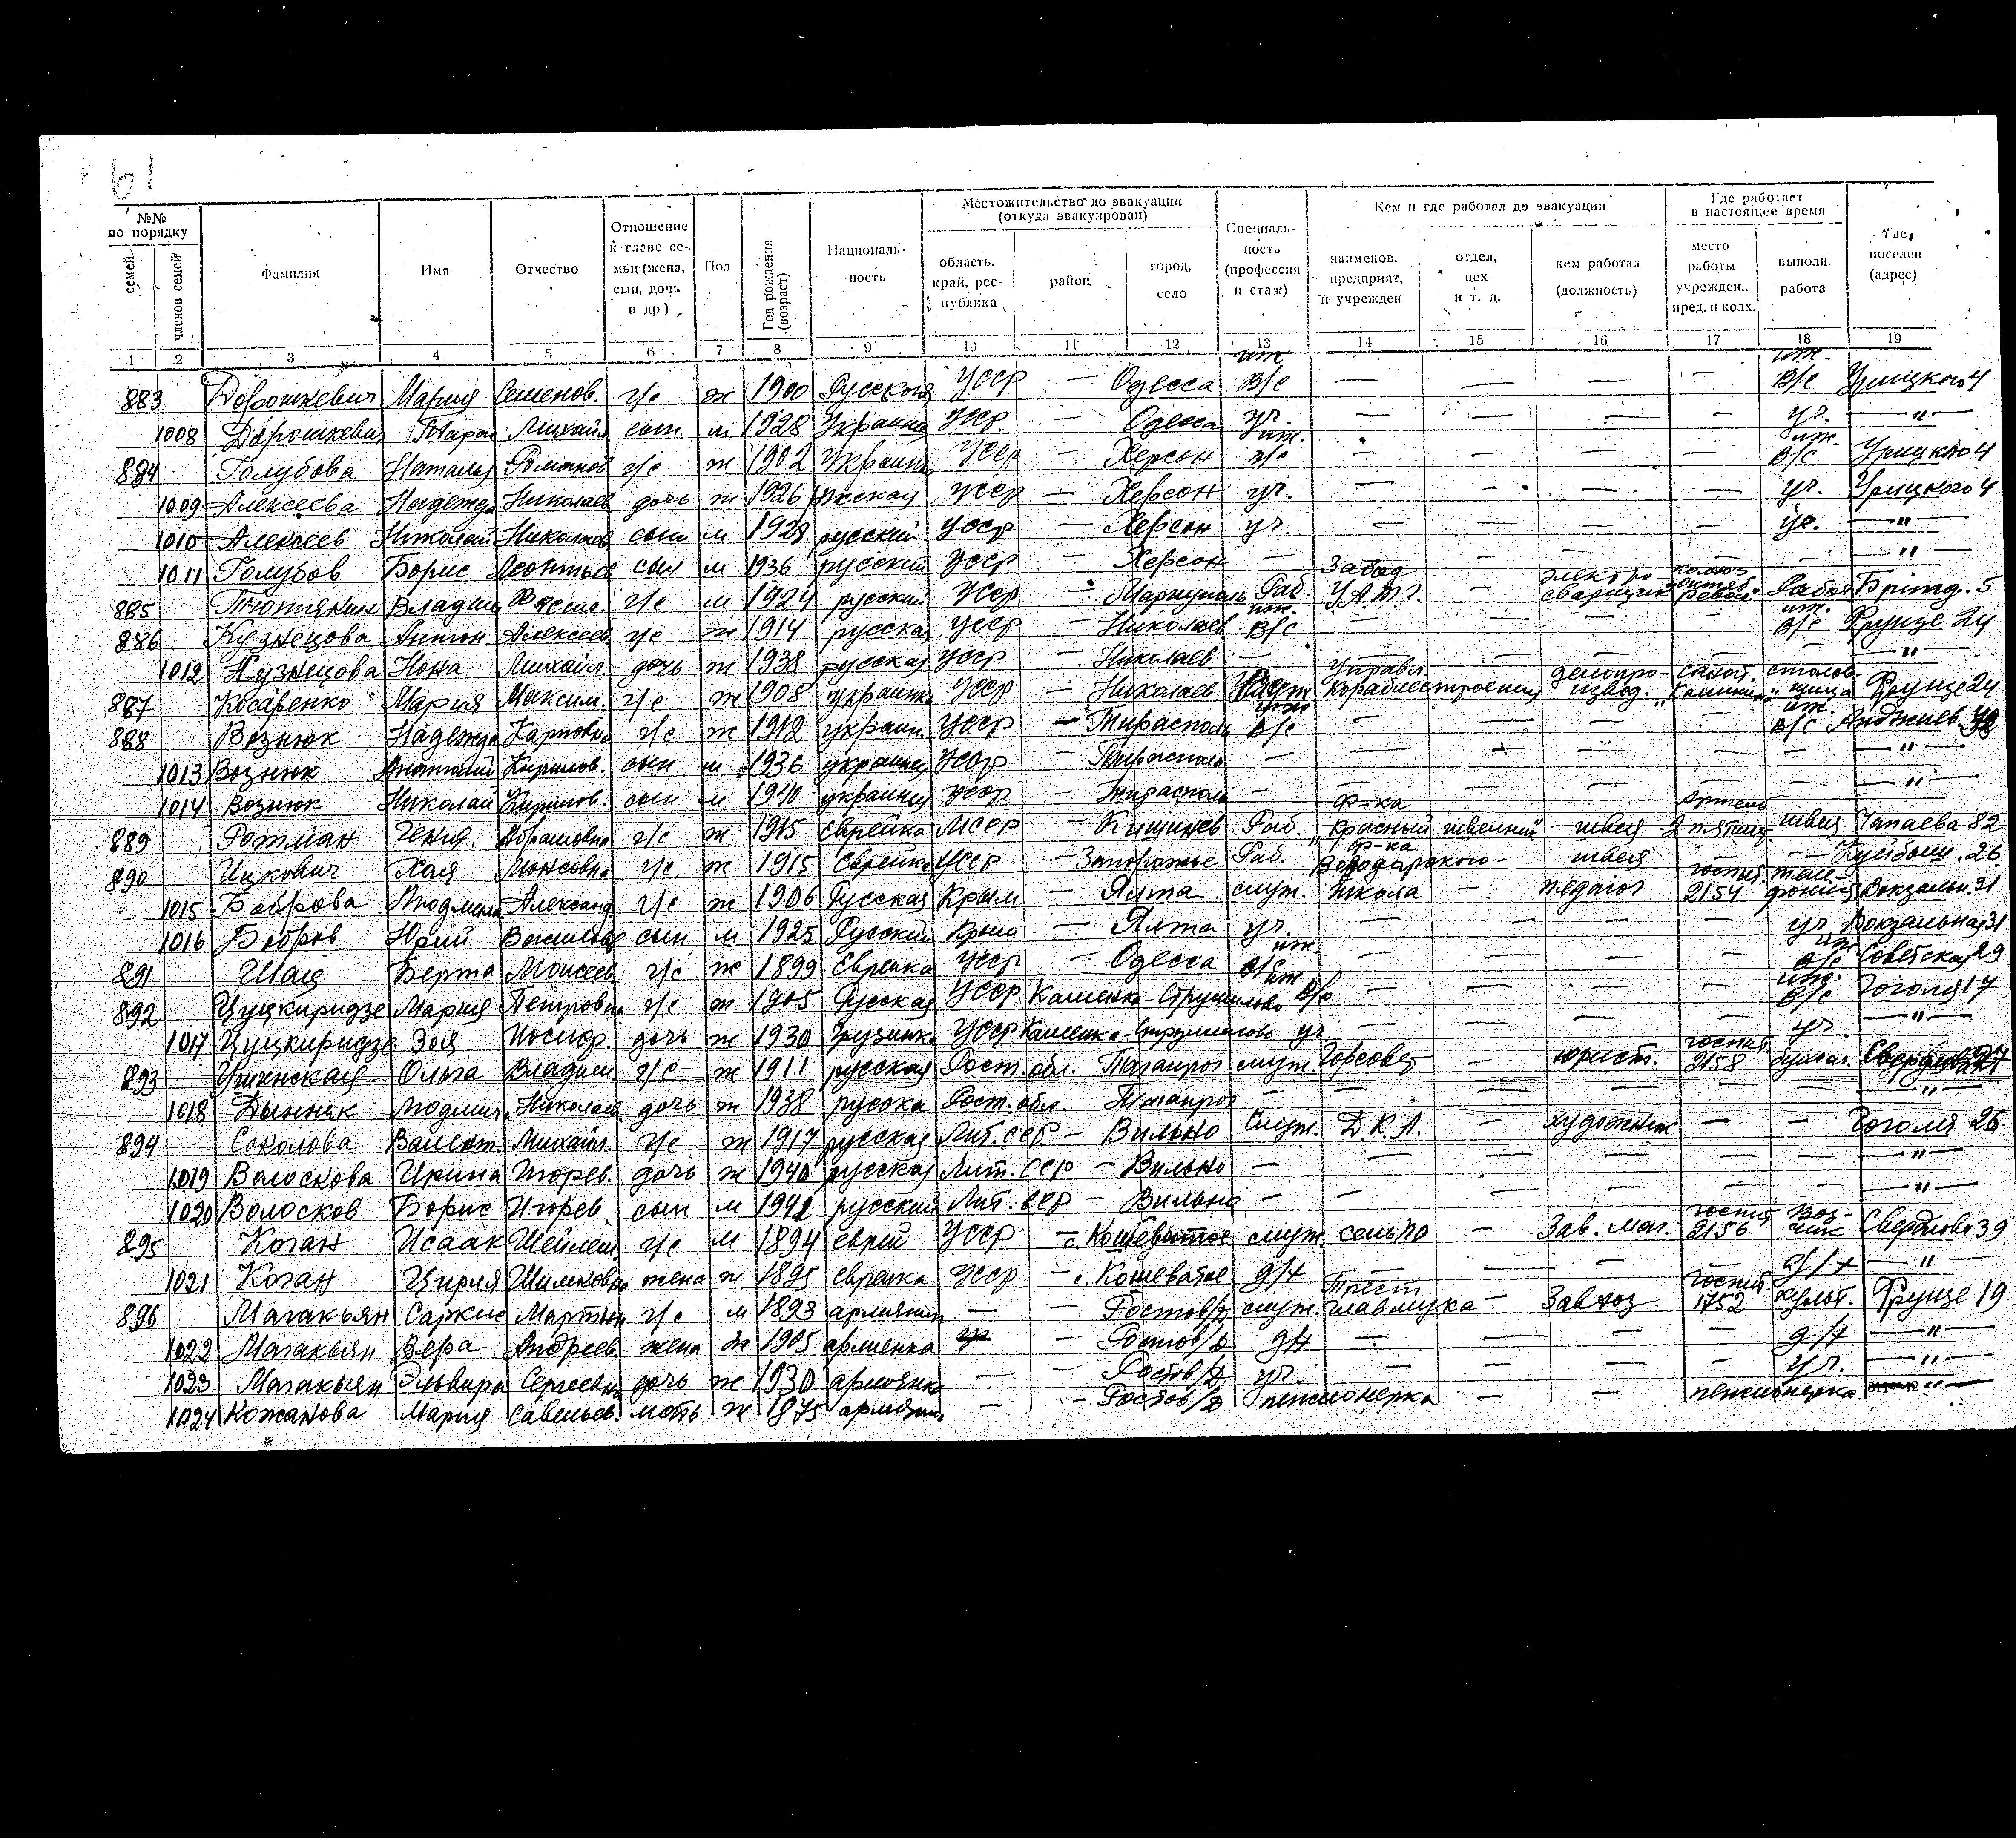 61
№№ по порядку
семей
членов семей
Фамилия
Имя
Отчество
Отношение к главе семьи (жена, сын, дочь и др.)
Пол
Год рождения (возраст)
Националь-ность
Местожительство до эвакуации (откуда эвакуирован)
область, край, рес-публика
район
город, село
Специаль-ность (профессия и стаж)
Кем и где работал до эвакуации
наименов. предприят, и учрежден
отдел, цех и т. д.
кем работал (должность)
Где работает в настоящее время
место работы учрежден., пред. и колх.
выполн. работа
Где поселен (адрес)
1 2 3 4 5 6 7 8 9 10 11 12 13 14 15 16 17 18 19
883 Дорошкевич Мария Семенов. г/с ж 1900 Русская УССР — Одесса иж. В/с — — — — иж. В/с Урицкого 4
1008 Дорошкевич Михайл сын м 1928 Украинец УССР — Одесса уч. — — — уч. — " —
884 Голубова Наталья Романов г/с ж 1902 Украинк УССР — Херсон иж. В/с — — — — иж. В/с Урицкого 4
1009 Алексеева Надежда Николаев дочь ж 1926 русская УССР — Херсон уч. — — — — уч. Урицкого 4
1010 Алексеев Николай Николаев сын м 1928 русский УССР — Херсон уч. — — — — уч. — " —
1011 Голубов Борис Леонтьев сын м 1936 русский УССР — Херсон — — — — — " —
885 Владим г/с м 1924 русский УССР — Мариуполь Раб. Завод — электро-сварщик колхоз Октяб. Револ." Работ 5
886 Кузнецова Антон Алексеев г/с ж 1914 русская УССР — Николаев иж. В/с — — — — иж. В/с Фрунзе 24
1012 Кузнецова Нона Михайл. дочь ж 1938 русская УССР — Николаев — — — — — — " —
887 Косаренко Мария Максим. г/с ж 1908 украинка УССР — Николаев Управл. Кораблестроения делопро-извод. столов. Фрунзе 24
888 Вознюк Надежда Карповна г/с ж 1912 украин. УССР — Тирасполь иж. В/с — — — — иж. В/с
1013 Вознюк Анатолий Кирилов. сын м 1936 украинец УССР — Тирасполь — — — — — — " —
1014 Вознюк Николай Кирилов. сын м 1940 украинец УССР — Тирасполь — — — — — — " —
889 Ротман Геня Абрамовна г/с ж 1915 Еврейка МССР — Кишинев Раб. ф-ка "Красный швейник" швея Артель 2 пятил. швея Чапаева 82
890 Ицкович Хая Моисовна г/с ж 1915 Еврейка УССР — Запорожье Раб. ф-ка Володарского — швея — — Куйбыш. 26
1015 Боброва Людмила Александ. г/с ж 1906 Русская Крым — Ялта служ. Школа — педагог госпит. 2154 Вокзальн. 31
1016 Бобров Юрий Васильев сын м 1925 Русский Крым — Ялта уч. — — — — уч. Вокзальная 31
891 Шац Берта Моисеев г/с ж 1899 Еврейка УССР — Одесса иж. В/с — — — — иж. В/с Советская 29
892 Цуцкиридзе Мария Петровна г/с ж 1905 Русская УССР Каменка-Струмилово иж. В/с — — — — иж. В/с Гоголя 17
1017 Цуцкиридзе Зоя Иосиф. дочь ж 1930 Грузинка УССР Каменка-Струмилово уч. — — — — уч. — " —
893 Ольга Владим. г/с ж 1911 русская Рост. обл. Таганрог служ. Горсовет — юрист. госпит 2158
1018 Людмил. Николаев дочь ж 1938 русска Рост. обл. Таганрог — — — — — — " —
894 Соколова Валент. Михайл. г/с ж 1917 русская Лит. ССР — Вильно Служ. Д.К.А. художник — — Гоголя 26
1019 Волоскова Ирина Игорев. дочь ж 1940 русская Лит. ССР — Вильно — — — — — — " —
1020 Волосков Борис Игорев. сын м 1941 русский Лит. ССР — Вильно — — — — — — " —
895 Коган Исаак г/с м 1894 еврей УССР — с. Кошеватое служ. сельпо — Зав. маг. госпит. 2156 воз-чик Свердлова 39
1021 Коган Цирия жена ж 1895 еврейка УССР — с. Кошеватое д/х — — — — д/х — " —
896 Магакьян Саркис г/с м 1893 армянин — — Ростов/Д служ. Трест главмука — Завхоз госпит. 1752 культ. Фрунзе 19
1022 Магакьян Вера Андреев. жена ж 1905 арменка — Ростов/Д д/х — — — — д/х — " —
1023 Магакьян Эльвира Сергеевна дочь ж 1930 армянка — — Ростов/Д уч. — — — — уч. — " —
1024 Кожанова Мария Савельев. мать ж 1875 армянк. — — Ростов/Д пенсионерка — — пенсионерка — " —